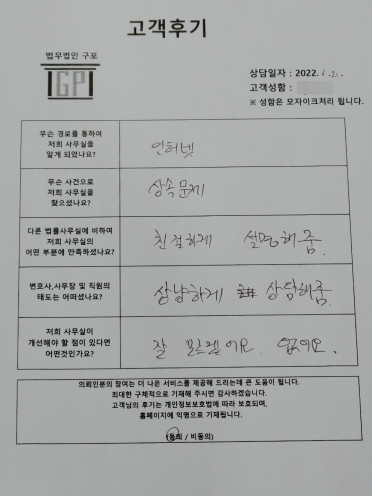 고객후기
법무법인 구포
GP
상담일자 : 2022. 1. 21.
고객성함 :
※ 성함은 모자이크처리 됩니다.
무슨 경로를 통하여
저희 사무실을
알게 되었나요?
인터넷
무슨 사건으로
저희 사무실을
찾으셨나요?
상속문제
다른 법률사무실에 비하여
저희 사무실의
어떤 부분에 만족하셨나요?
친절하게 설명해줌
변호사,사무장 및 직원의
태도는 어떠셨나요?
상냥하게 상담해줌
저희 사무실이
개선해야 할 점이 있다면
어떤것인가요?
잘 모르겠어요. 없어요.
의뢰인분의 참여는 더 나은 서비스를 제공해 드리는데 큰 도움이 됩니다.
최대한 구체적으로 기재해 주시면 감사하겠습니다.
고객님의 후기는 개인정보보호법에 따라 보호되며,
홈페이지에 익명으로 기재됩니다.
(동의 / 비동의)